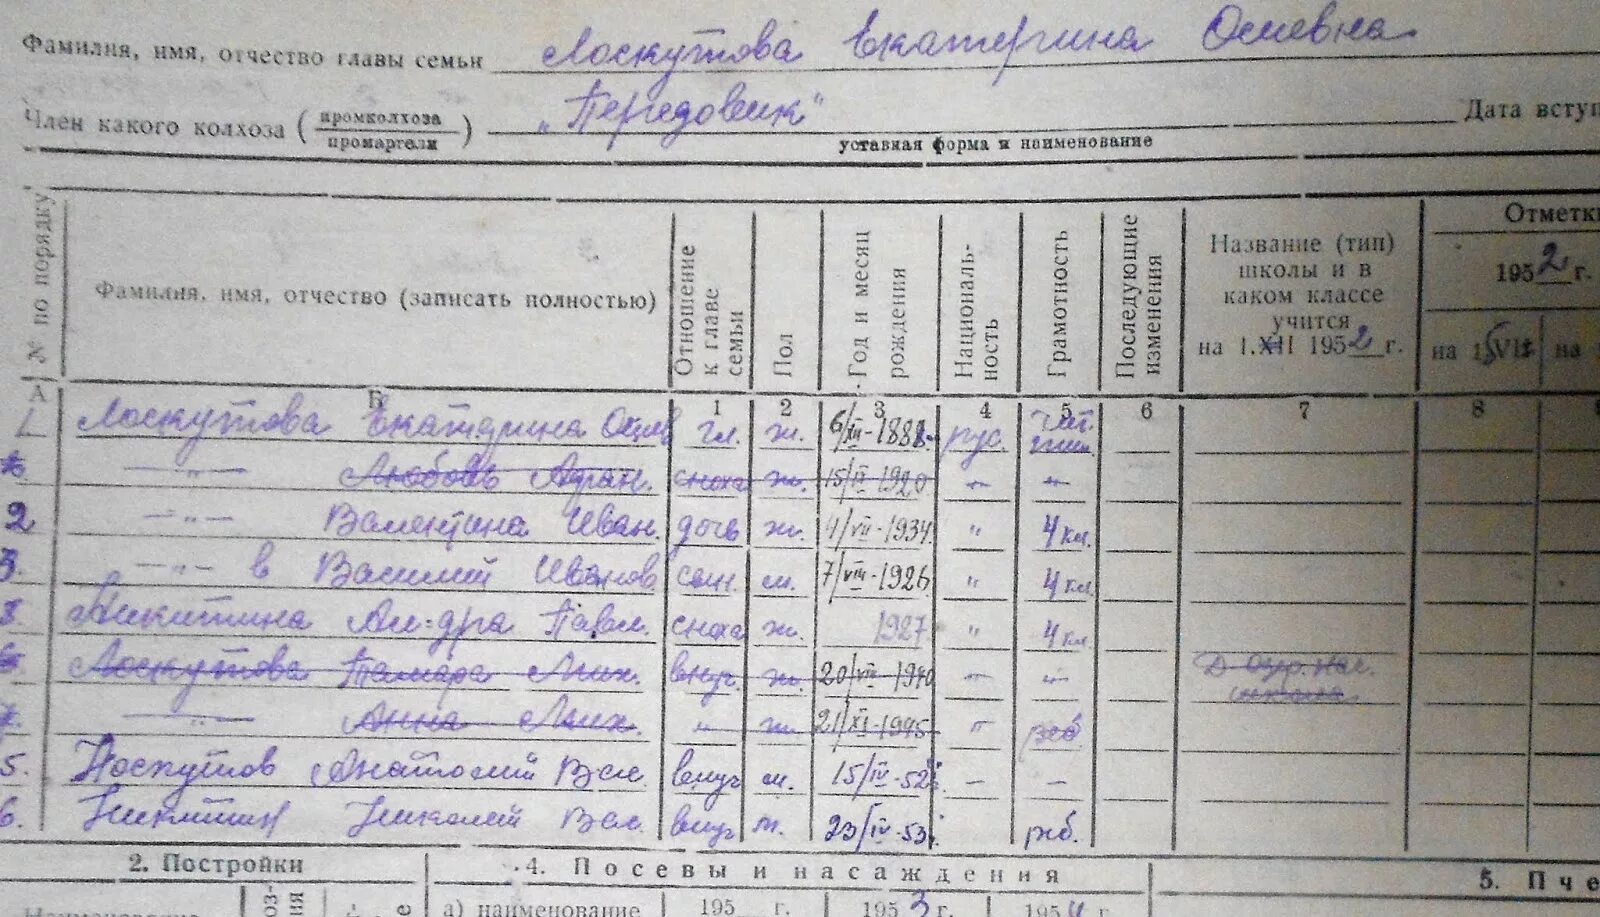 Фамилия, имя, отчество главы семьи Лоскутова Екатерина Осиевна
Член какого колхоза (промколхоза промартели) „Передовик" Дата вступ
уставная форма и наименование
№ по порядку Фамилия, имя, отчество (записать полностью) Отношение к главе семьи Пол Год и месяц рождения Националь-ность Грамотность Последующие изменения Название (тип) школы и в каком классе учится на 1.XII 1952 г. Отметк 1952 г. на 1 VII на
А Б 1 2 3 4 5 6 7 8
1 Лоскутова Екатерина Осиев гл. ж. 6/XII-1888 рус.
—„— Любовь Адриан. сноха ж. 15/IX-1920 —„— —„—
2 —„— Валентина Иван. дочь ж. 4/VII-1934. „ 4 кл.
3. —„— в Василий Иванов. сын. м. 7/VIII-1926 „ 4 кл
Никитина Ал-дра Павл. сноха ж. 1927 „ 4 кл
Лоскутова Тамара Мих. внуч. ж. 20/VII-1940 —„— —„—
—„— Анна Мих. „ ж. 21/XI-1945 „
5. Лоскутов Анатолий Вас внуч м. 15/IV-52 — —
6. Никитин Николай Вас. внуч м. 23/IV-53
2. Постройки 4. Посевы и насаждения 5. Пче
Наименование а) наименование 195 г. 1953 г. 1954 г.